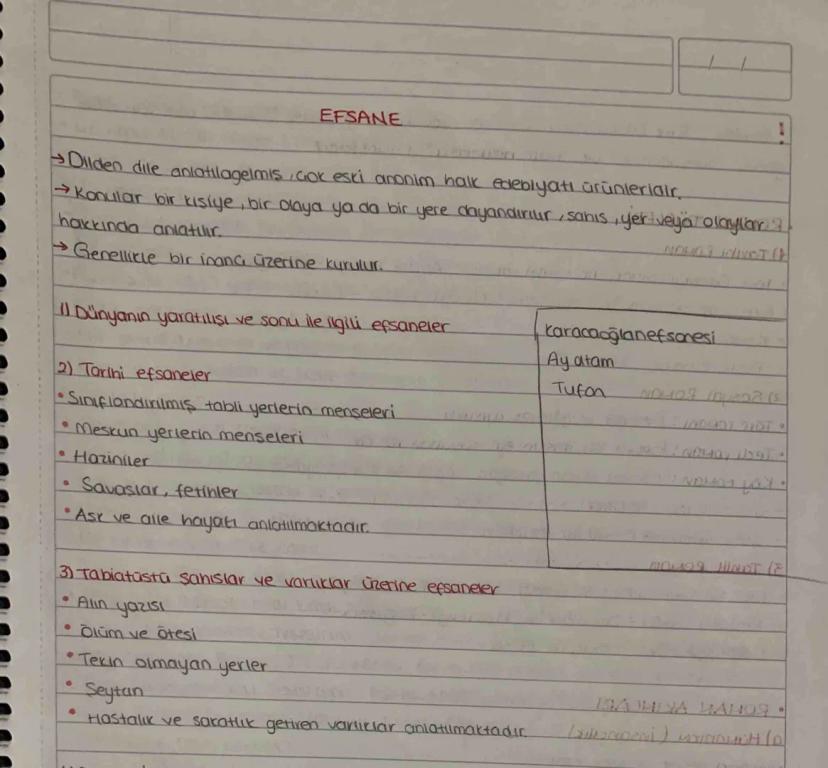 EFSANE
!
→ Dilden dile anlatılagelmiş, çok eski anonim halk edebiyatı ürünleridir.
→ Konular bir kişiye, bir olaya ya da bir yere dayandırılır, şahıs, yer veya olaylar
hakkında anlatılır.
→ Genellikle bir inancı üzerine kurulur.
1) Dünyanın yaratılışı ve sonu ile ilgili efsaneler
Karacaoğlan efsanesi
Ay atam
Tufan
2) Tarihi efsaneler
• Sınıflandırılmış tabli yerlerin menseleri
• Meskun yerlerin menseleri
• Haziniler
• Savaslar, fetihler
• Ask ve aile hayatı anlatılmaktadır.
3) Tabiatüstü şahıslar ve varlıklar üzerine efsaneler
• Alın yazısı
• Ölüm ve ötesi
• Tekin olmayan yerler
• Seytan
• Hastalık ve sakatlık getiren varlıklar anlatılmaktadır.